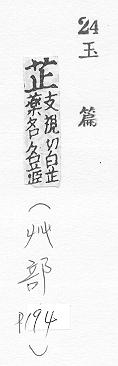 24
玉篇
芷
支視切白芷
藥名名芷
(艸部
P194)